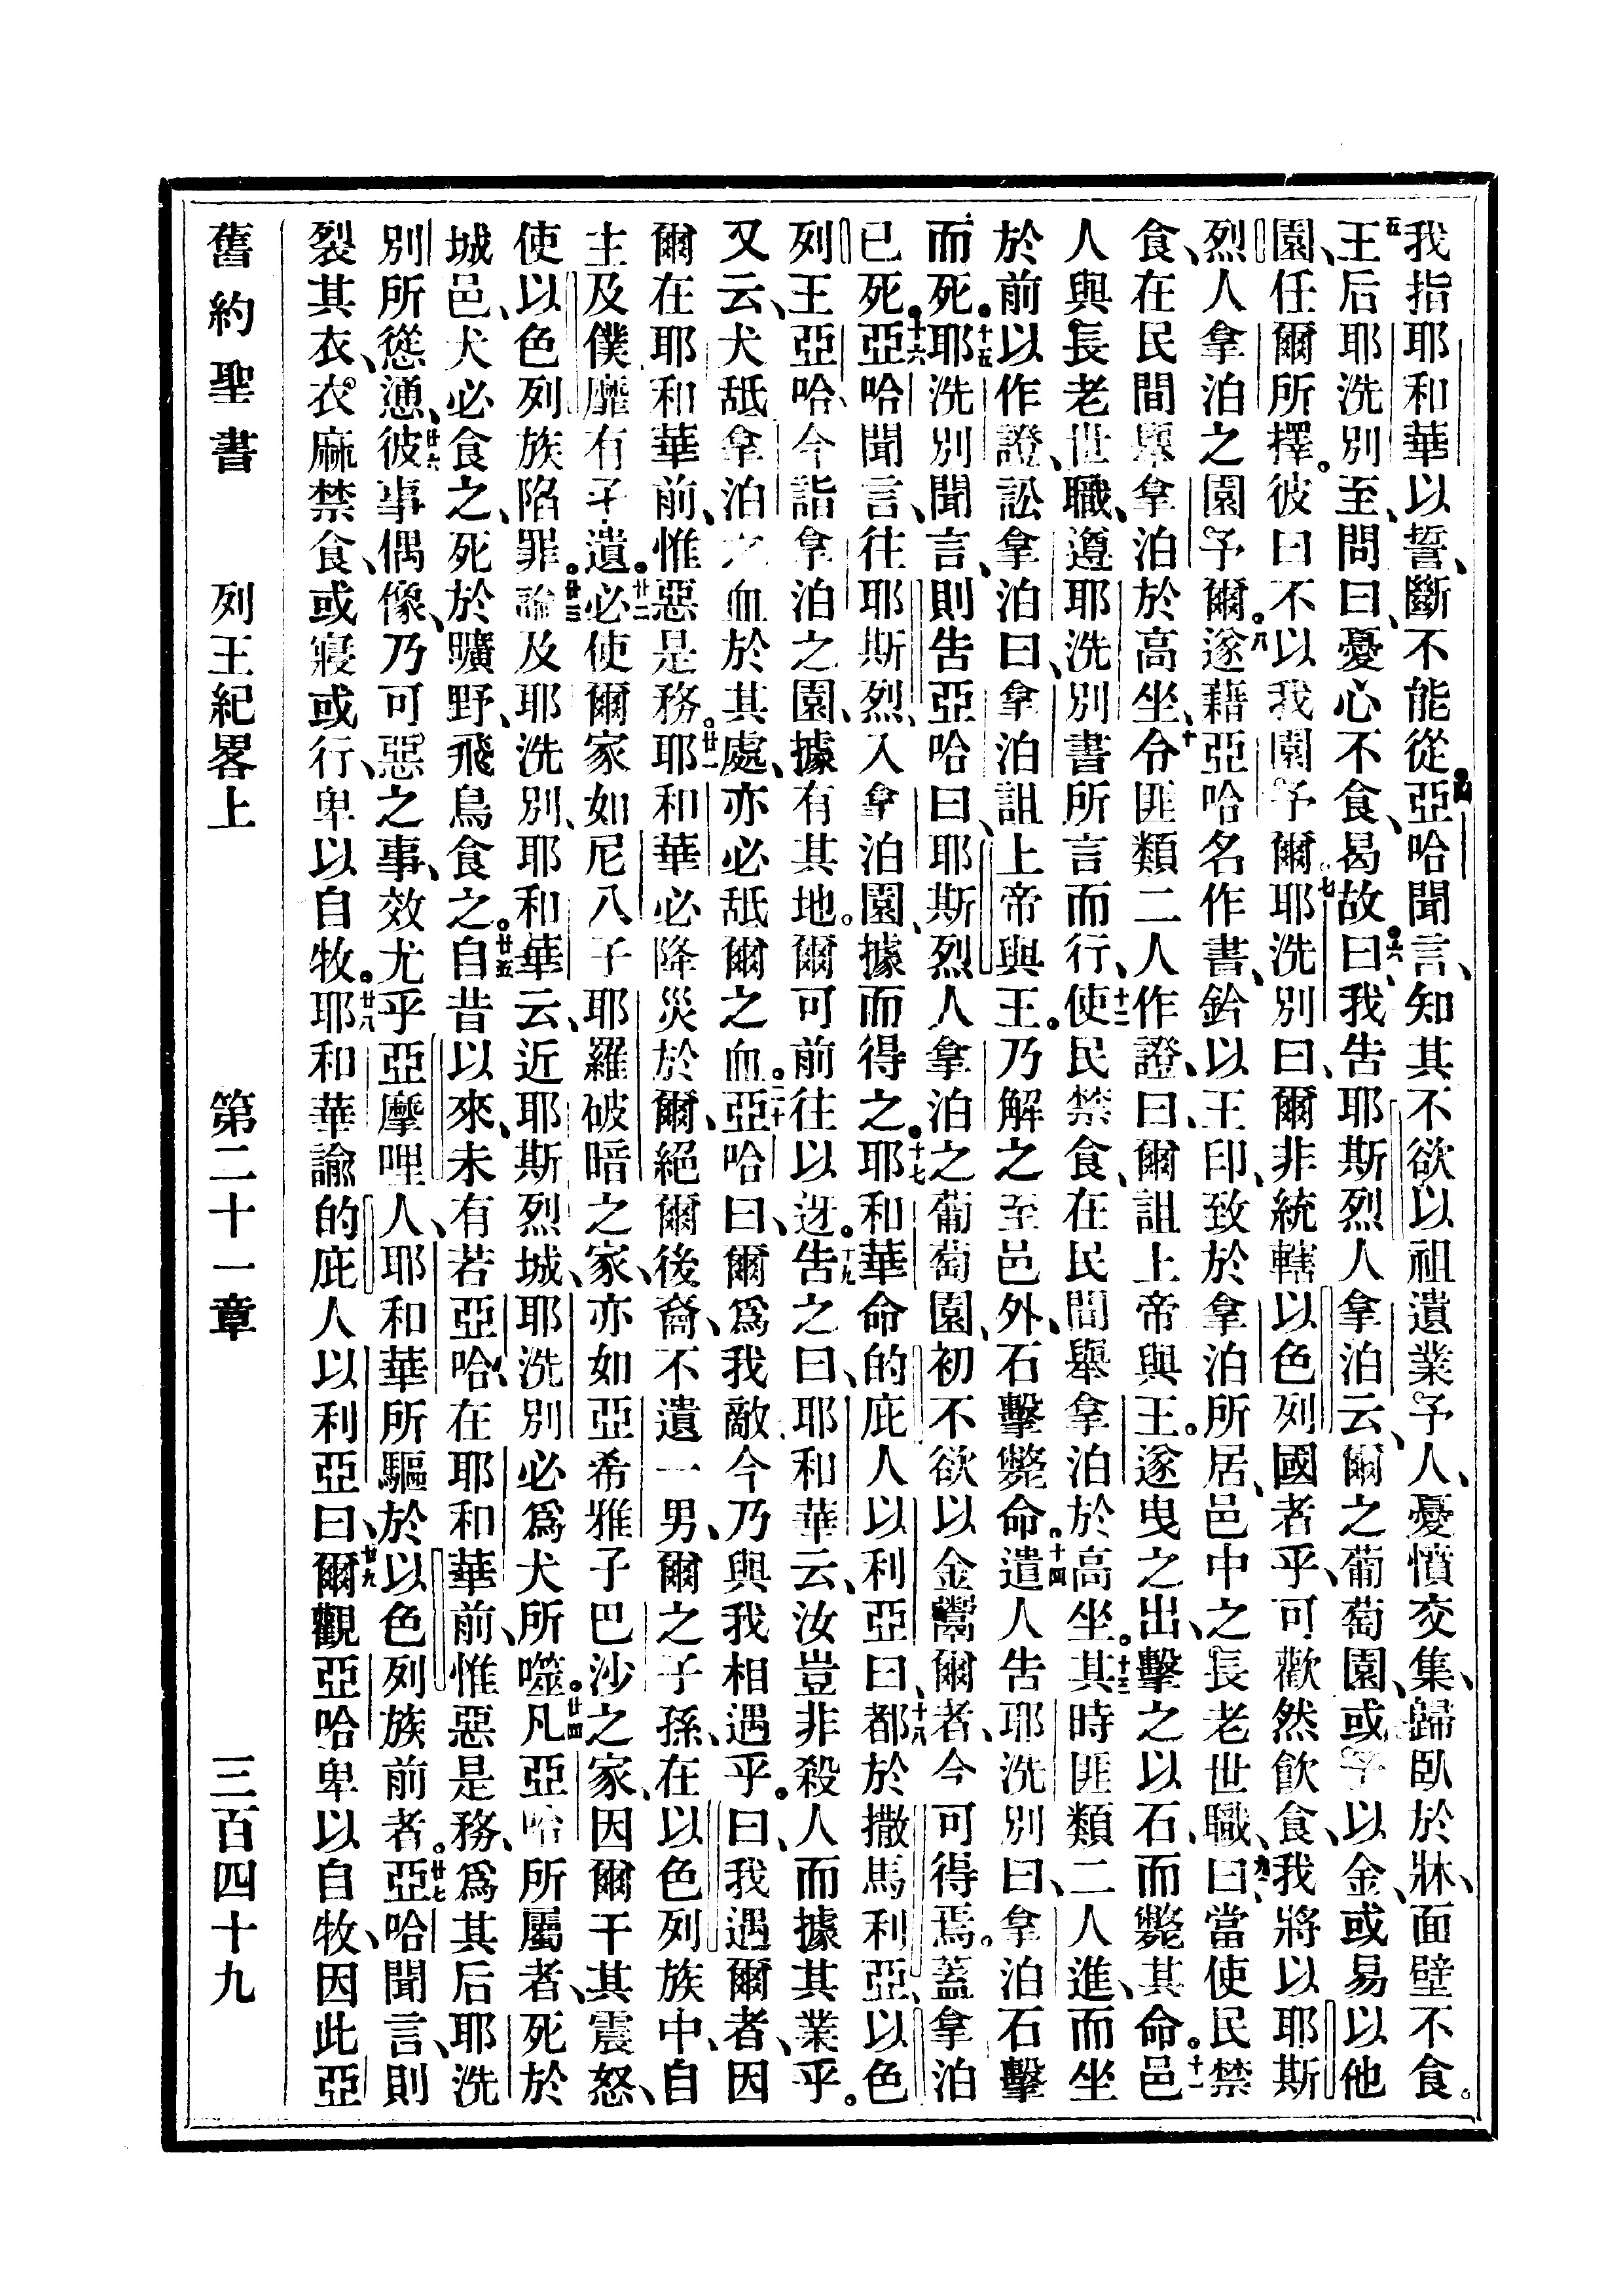 我指耶和華以誓、斷不能從。四亞哈聞言、知其不欲以祖遺業予人、憂憤交集、歸臥於牀、面壁不食。
五王后耶洗別至、問曰、憂心不食、曷故。六曰、我告耶斯烈人拿泊云、爾之葡萄園、或予以金、或易以他
園、任爾所擇。彼曰、不以我園予爾。七耶洗別曰、爾非統轄以色列國者乎、可歡然飲食、我將以耶斯
烈人拿泊之園予爾。八遂藉亞哈名作書、鈐以王印、致於拿泊所居、邑中之長老世職、九曰、當使民禁
食、在民間舉拿泊於高坐、十令匪類二人作證、曰、爾詛上帝與王。遂曳之出、擊之以石、而斃其命。十一邑
人與長老世職、遵耶洗別書所言而行、十二使民禁食、在民間舉拿泊於高坐。十三其時匪類二人進、而坐
於前以作證、訟拿泊曰、拿泊詛上帝與王。乃解之至邑外、石擊斃命。十四遣人告耶洗別曰、拿泊石擊
而死。十五耶洗別聞言、則告亞哈曰、耶斯烈人拿泊之葡萄園、初不欲以金鬻爾者、今可得焉。蓋拿泊
已死。十六亞哈聞言、往耶斯烈、入拿泊園、據而得之。十七耶和華命的庇人以利亞曰、十八都於撒馬利亞、以色
列王亞哈、今詣拿泊之園、據有其地。爾可前往以迓。十九告之曰、耶和華云、汝豈非殺人而據其業乎。
又云、犬舐拿泊之血於其處、亦必舐爾之血。二十亞哈曰、爾爲我敵、今乃與我相遇乎。曰、我遇爾者、因
爾在耶和華前、惟惡是務。廿一耶和華必降災於爾、絕爾後裔、不遺一男、爾之子孫、在以色列族中、自
主及僕、靡有孑遺。廿二必使爾家如尼八子耶羅破暗之家、亦如亞希雅子巴沙之家、因爾干其震怒、
使以色列族陷罪。廿三論及耶洗別、耶和華云、近耶斯烈城、耶洗別必爲犬所噬。廿四凡亞哈所屬者、死於
城邑、犬必食之、死於曠野、飛鳥食之。廿五自昔以來、未有若亞哈、在耶和華前、惟惡是務、爲其后耶洗
別所慫慂、廿六彼事偶像、乃可惡之事、效尤乎亞摩哩人、耶和華所驅於以色列族前者。廿七亞哈聞言、則
裂其衣、衣麻禁食、或寢或行、卑以自牧。廿八耶和華諭的庇人以利亞曰、廿九爾觀亞哈卑以自牧、因此亞
舊約聖書　列王紀畧上　第二十一章　三百四十九